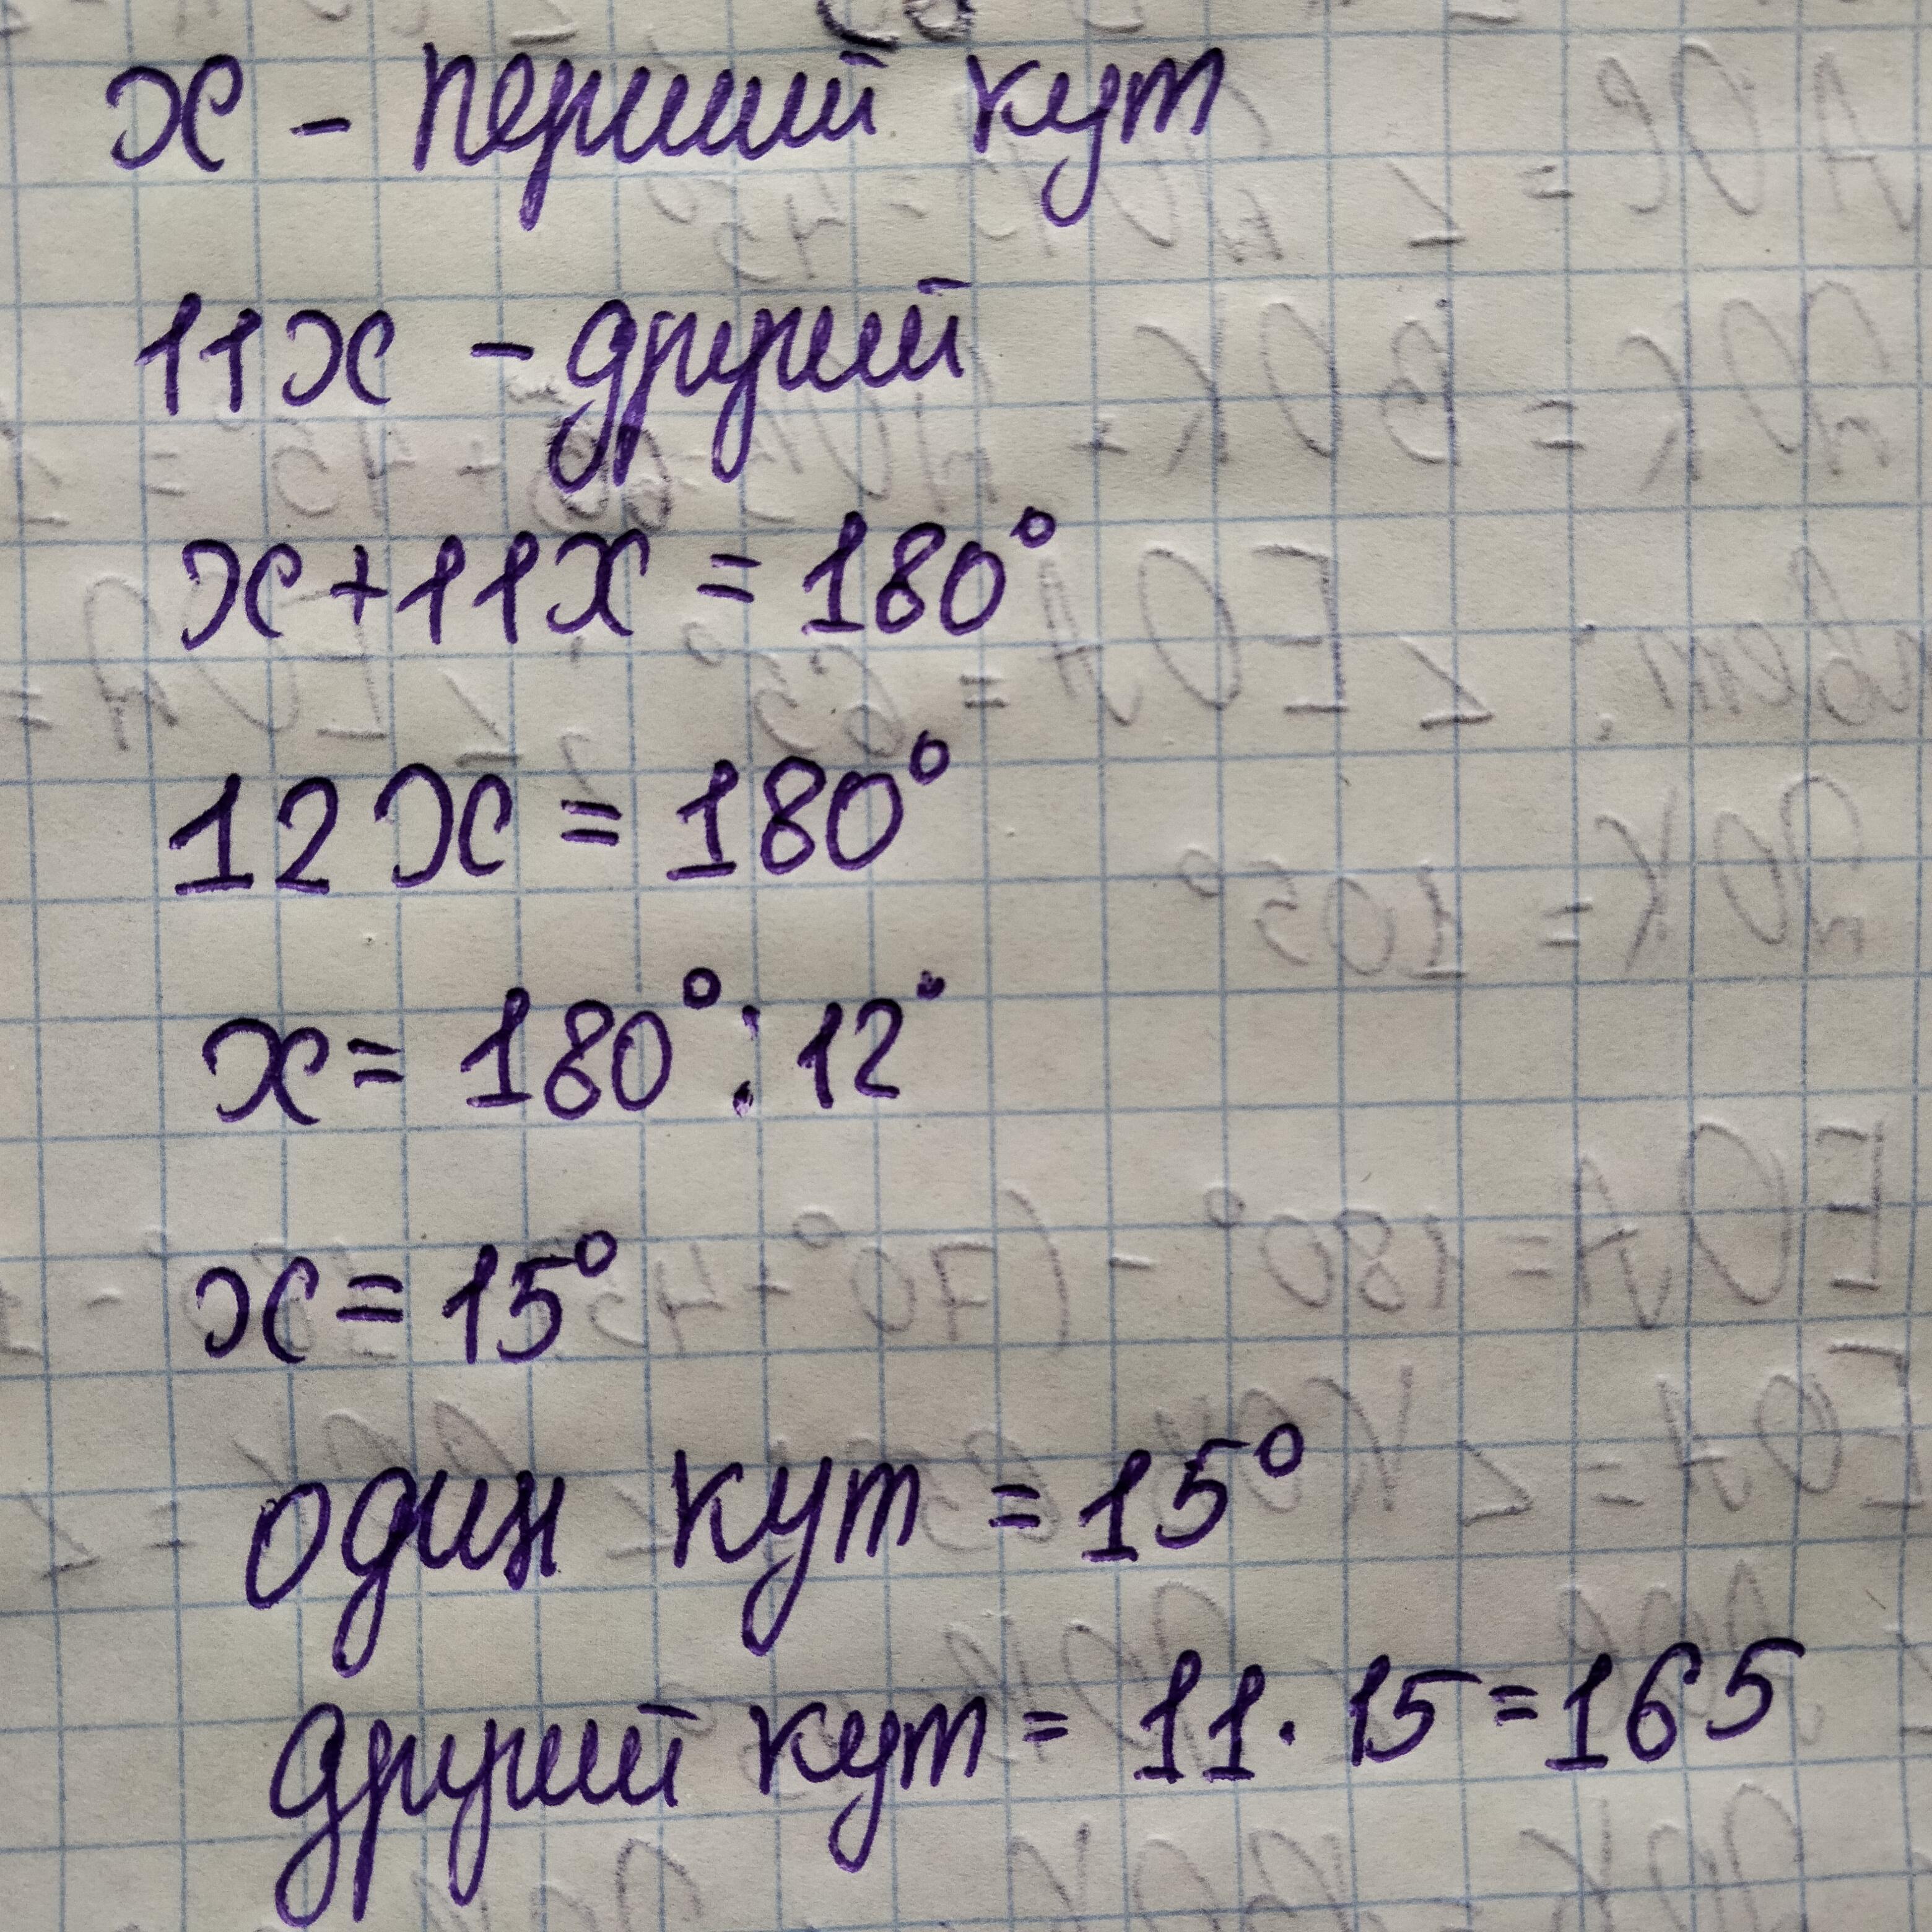 х - перший кут
11х - другий
х+11х = 180°
12х = 180°
х = 180° : 12°
х = 15°
один кут = 15°
другий кут = 11 · 15 = 165